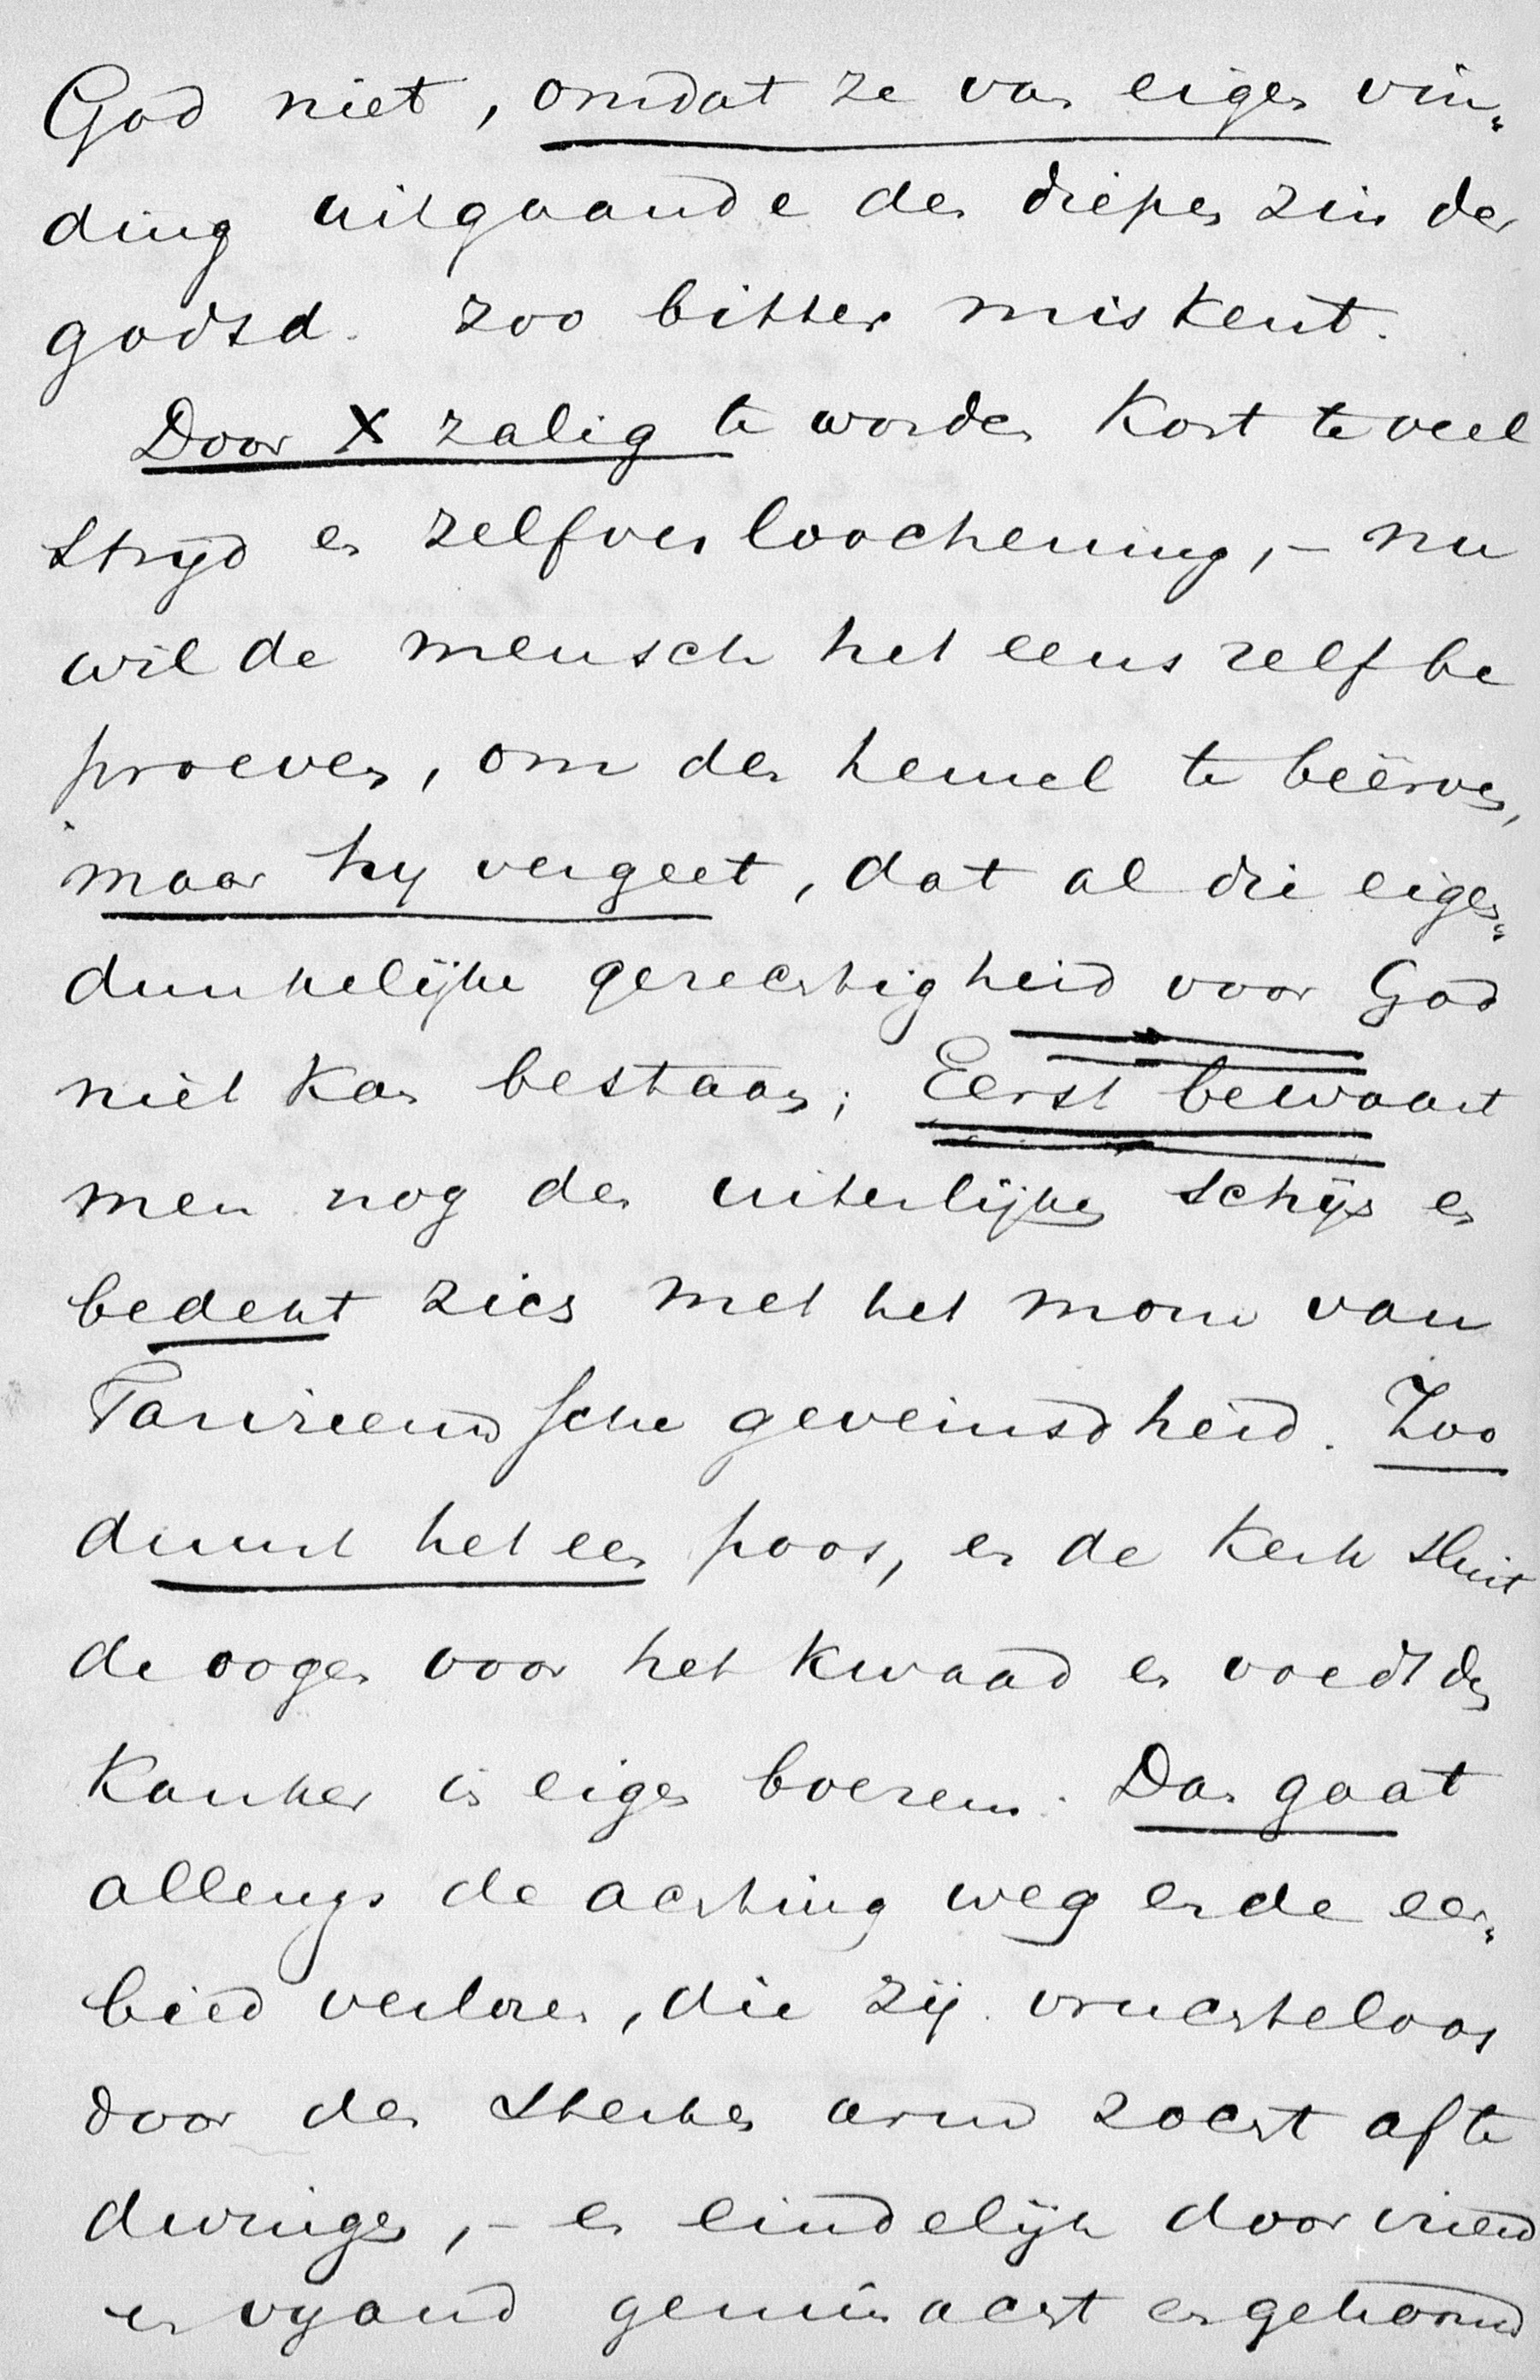 God niet, omdat ze van eigen vin=
ding uitgaande den diepen zin der
godsd. zoo bitter miskent.
Door X zalig te worden kost te veel
strijd en zelfverloochening, – nu
wil de mensch het eens zelf be
proeven, om den hemel te beërven,
maar hy vergeet, dat al die eigen=
dunkelijke gerechtigheid voor God
niet kan bestaan; Eerst bewaart
men nog den uiterlijken schijn en
bedekt zich met het mom van
Farizeeuwsche geveinsdheid. Zoo
duurt het een poos, en de kerk sluit
de oogen voor het kwaad en voedt den
kanker in eigen boezem. Dan gaat
allengs de achting weg en de eer=
bied verloren, die zij vruchteloos
door den sterken arm zocht af te
dwingen, – en eindelijk door vriend
en vyand geminacht en gehoond